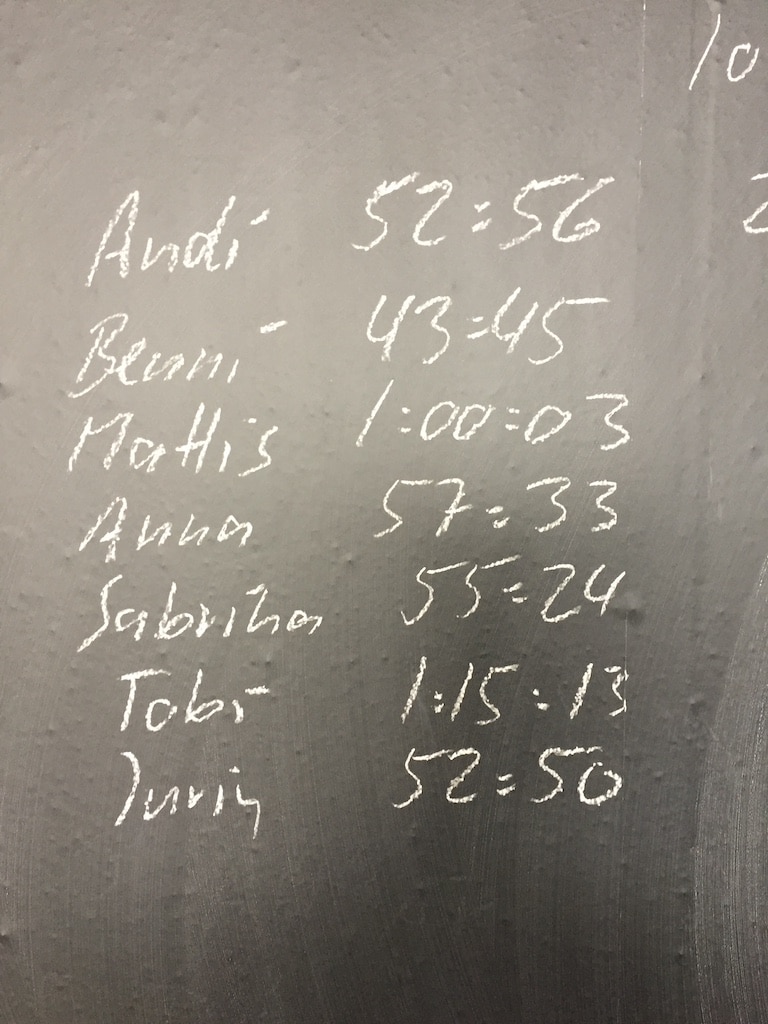 10
Andi 52:56
Benni 43:45
Mattis 1:00:03
Anna 57:33
Sabrina 55:24
Tobi 1:15:13
52:50